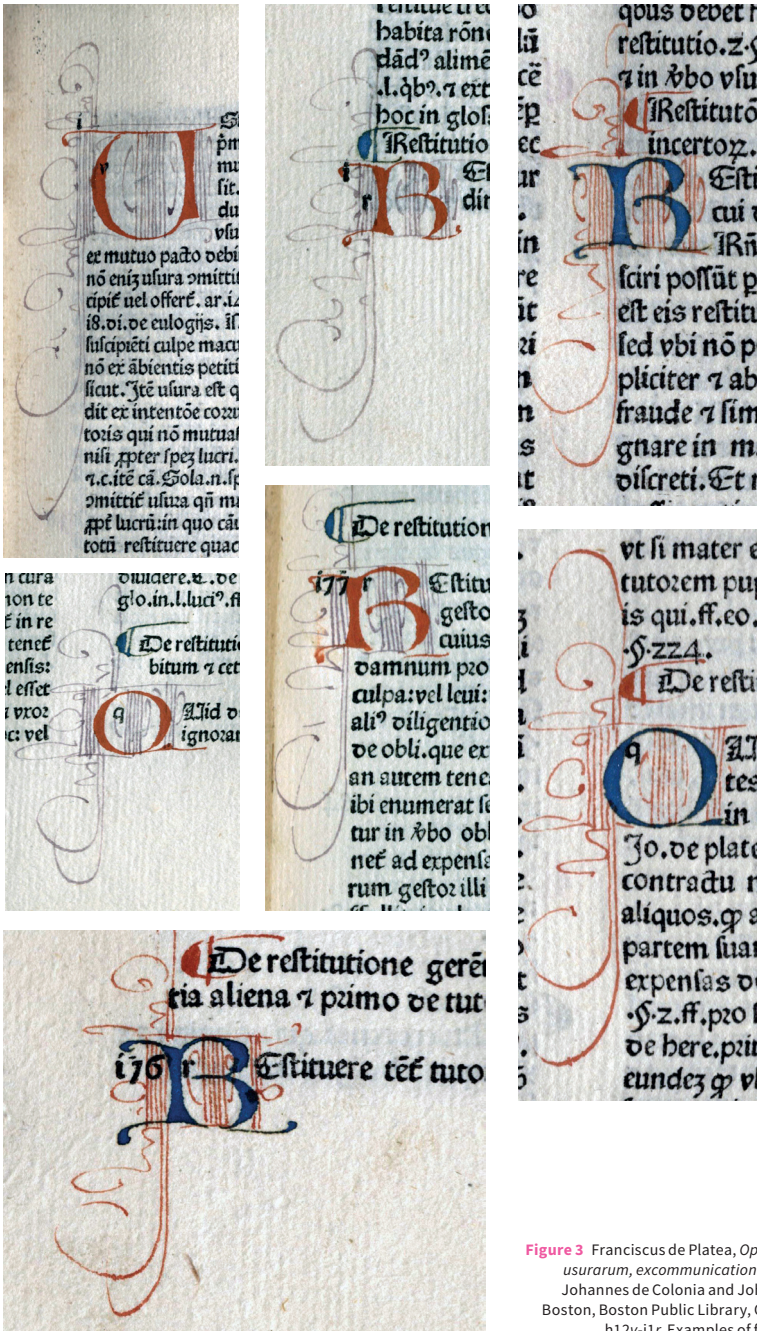 mu
sit.
du
usu
ex mutuo pacto debi
nō eniʒ usura ɔmittit
cipit̄ uel offert̄. ar.i4
i8.di.de eulogijs. Iſ
ſuſcipiēti culpe macu
nō ex ābientis petiti
ſicut. Itē uſura eſt q
dit ex intentōe corru
toris qui nō mutuaſ
niſi ꝓpter ſpeʒ lucri.
⁊.c.itē cā. Sola.n.ſp
ɔmittit̄ uſura qñ mu
totū reſtituere quac
habita rōne
dād⁹ alimē
.l.q̇b⁹.⁊ ext
hoc in gloſ
Reſtitutio
i
r
R Eſ
dir
qbus debet h
reſtitutio.z.§
⁊ in ꝟbo vſu
Reſtitutō
incertoꝝ.
R Eſti
cui d
ſciri poſſūt p
eſt eis reſtitu
ſed vbi nō p
pliciter ⁊ ab
fraude ⁊ ſim
gnare in m
diſcreti. Et n
n cura
non te
t̄ in re
tenet̄
enſis:
l eſſet
a vxor
c: vel
diuidere.C.de
glo.in.l.luci⁹.ff
De reſtituti
bitum ⁊ cet
q
Q Uid d
ignoran
De reſtitution
i77 r
R Eſtitu
geſto
cuius
damnum pro
culpa:vel leui:
ali⁹ diligentio
de obli.que ex
an autem tene
ibi enumerat ſe
tur in ꝟbo obl
net̄ ad expenſa
rum geſtor illi
vt ſi mater e
tutorem pup
is qui.ff.eo.
.§.224.
De reſti
q
Q UI
tes
in
Jo.de plate
contractu n
aliquos.ꝙ a
partem ſuam
expenſas de
.§.z.ff.pro ſ
de here.prin
eundeʒ ꝙ vl
De reſtitutione gerē
tia aliena ⁊ primo de tut
i76 r
R Eſtituere tēt̄ tuto
Figure 3 Franciscus de Platea, Op
usurarum, excommunication
Johannes de Colonia and Joh
Boston, Boston Public Library, Q
h12v-i1r. Examples of f